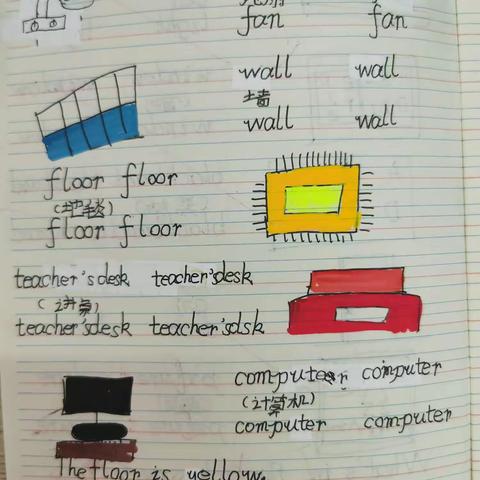 fan fan
wall wall
墙
wall wall
floor floor
(地毯)
floor floor
teacher's desk teacher'sdesk
(讲桌)
teacher'sdesk teacher'sdsk
computer computer
(计算机)
computer computer
The floor is yellow.